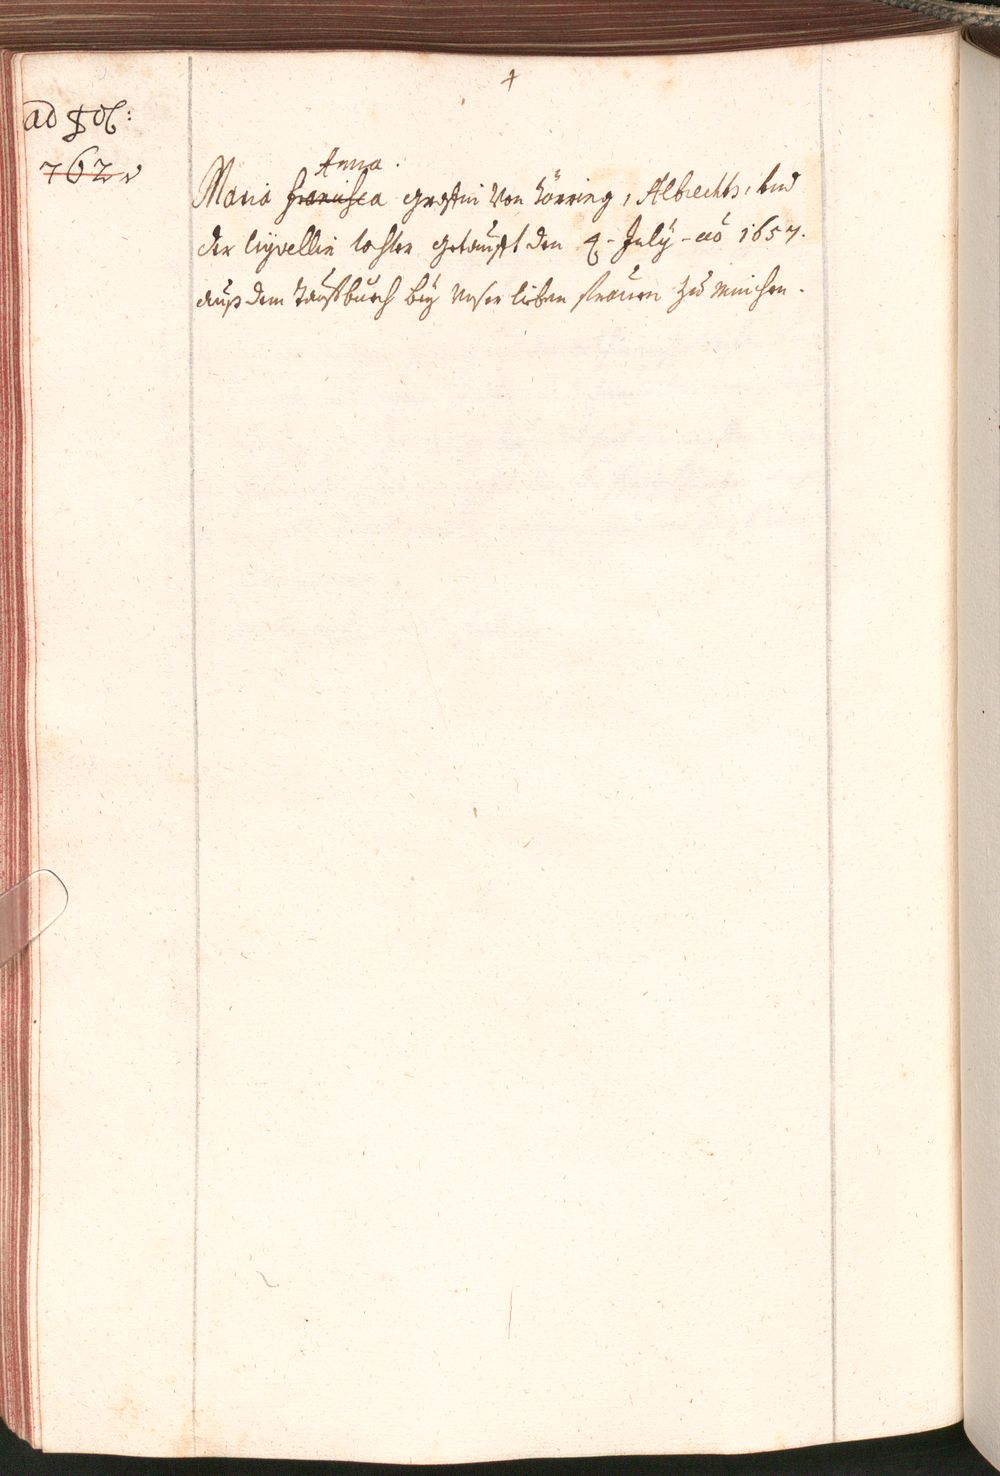 ad Fol:
762
Anna.
Maria Francisca Gräfin Von Törring, Albrechts, und
der Crivellin tochter getaufft den 4. July - aō 1657.
auß dem Tauffbuech bey Unser lieben frauen zu München.